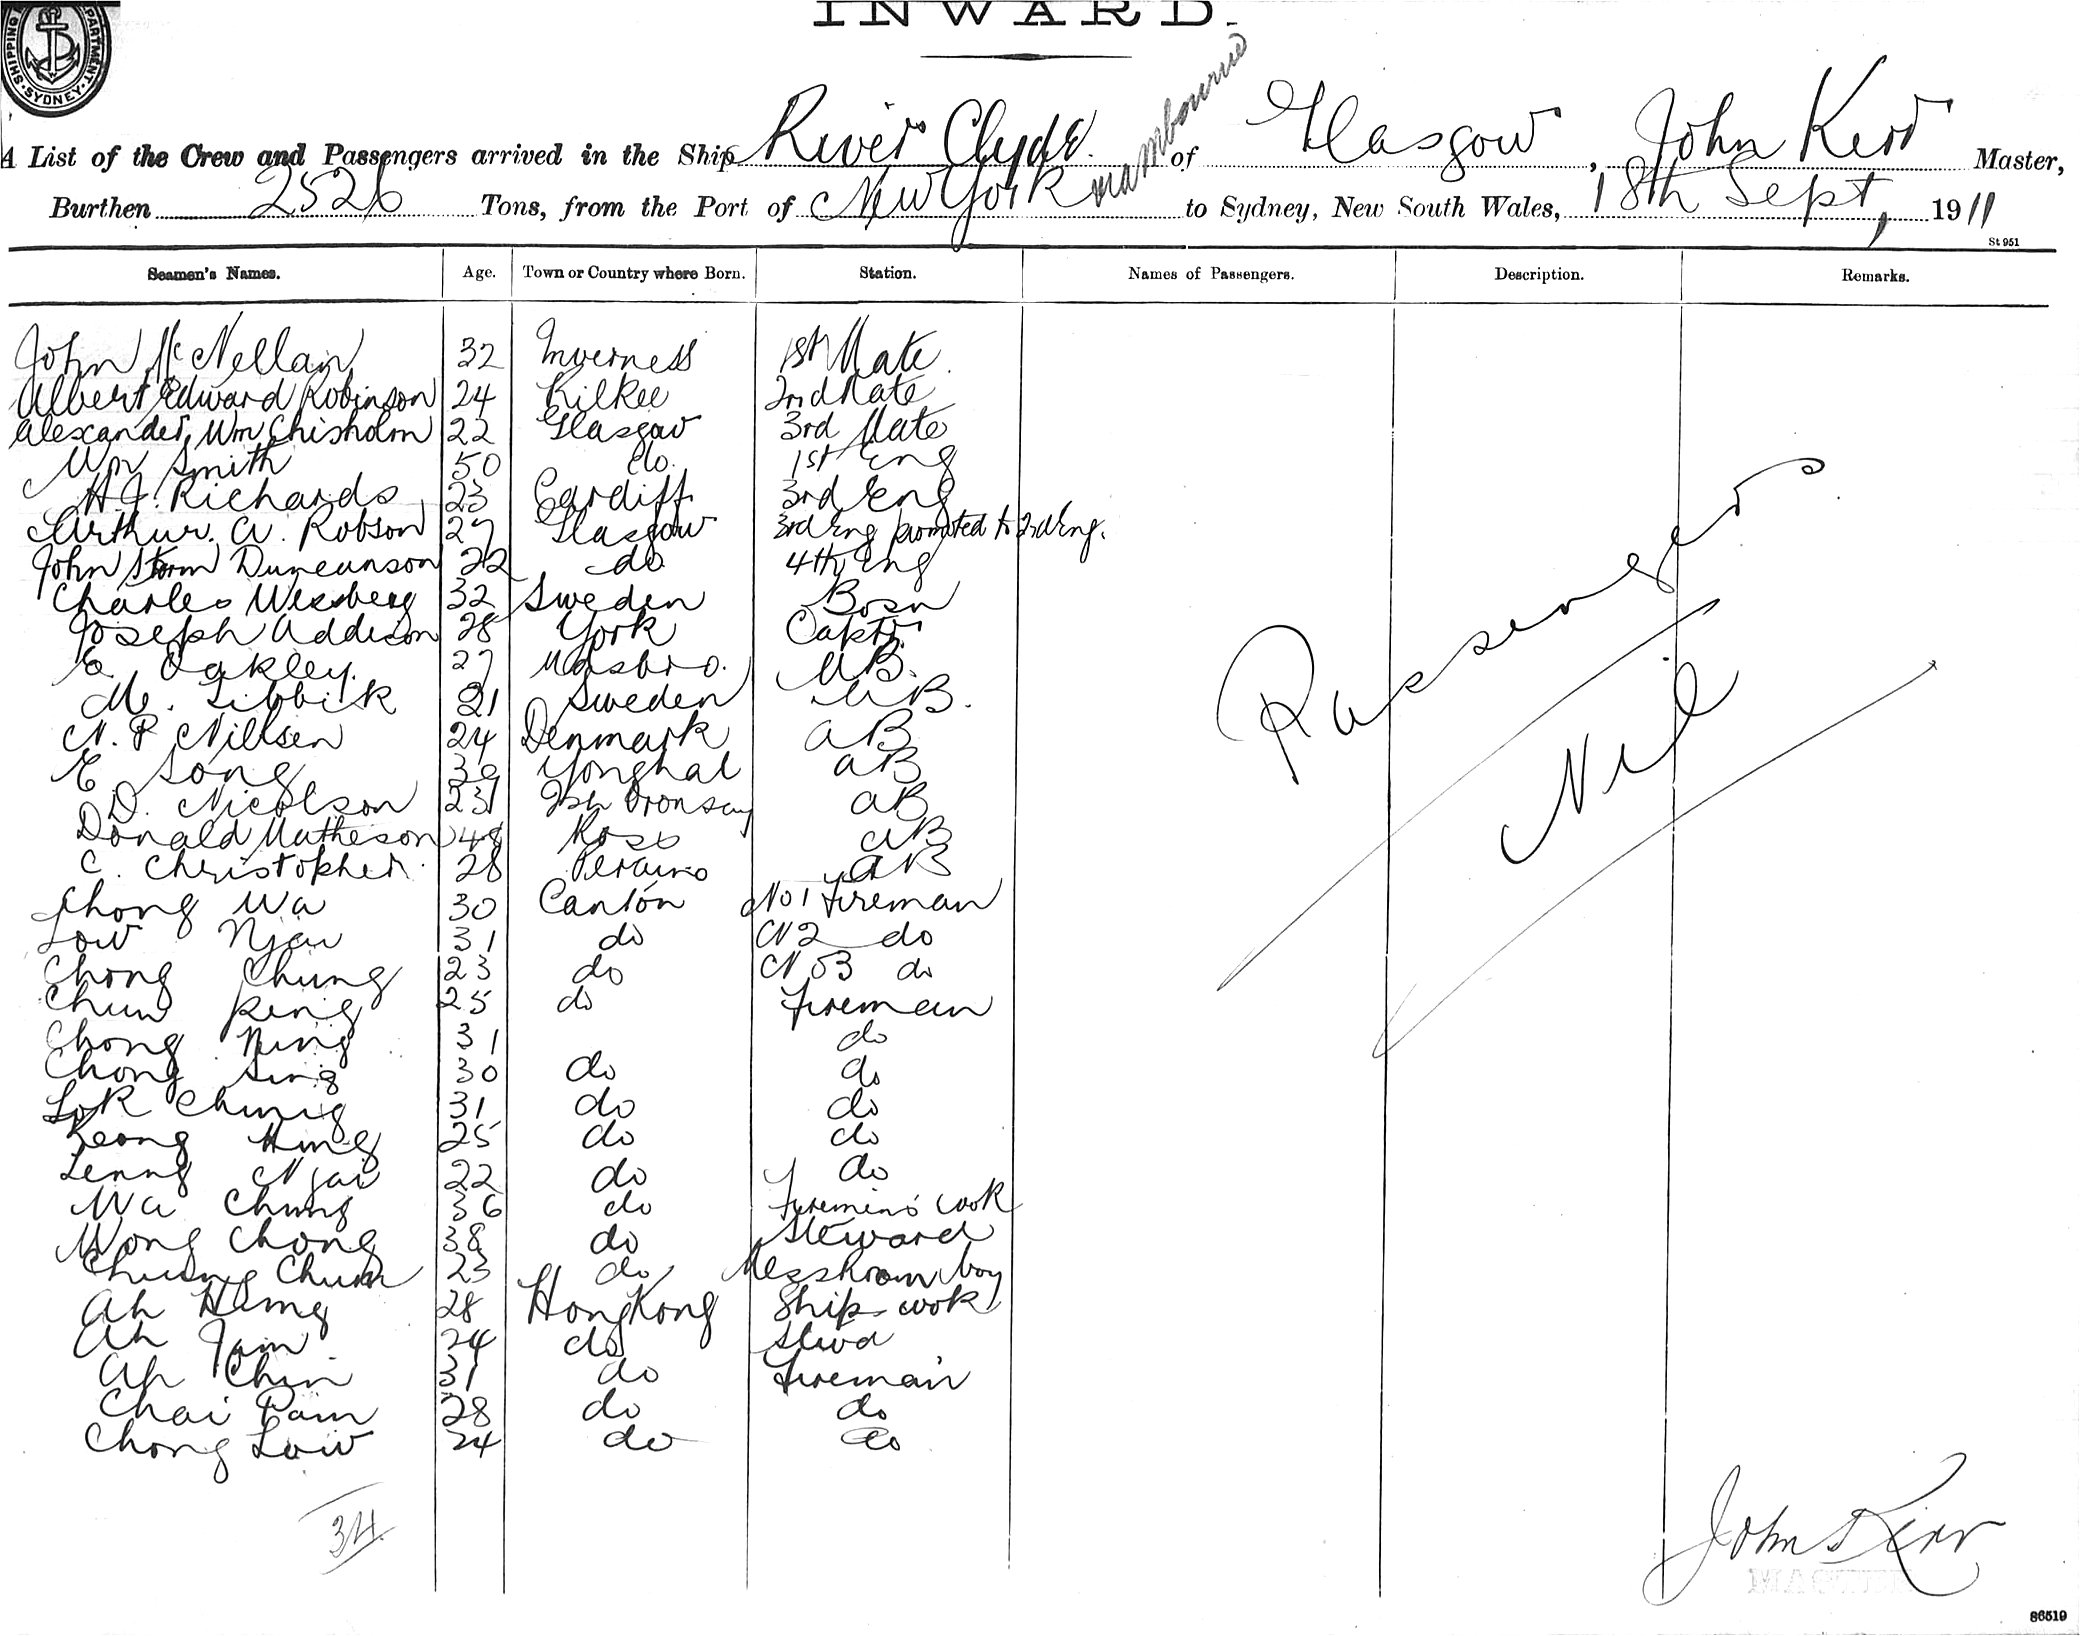 INWARD.
SHIPPING DEPARTMENT SYDNEY
A List of the Crew and Passengers arrived in the Ship River Clyde of Glasgow, John Kerr Master,
via Melbourne
Burthen 2526 Tons, from the Port of New York to Sydney, New South Wales, 18th Sept, 1911
St 951
Seamen's Names. Age. Town or Country where Born. Station. Names of Passengers. Description. Remarks.
John McNellan 32 Inverness 1st Mate
Albert Edward Robinson 24 Kilkee 2nd Mate
Alexander Wm Chisholm 22 Glasgow 3rd Mate
Wm Smith 50 do. 1st Eng
H.J. Richards 23 Cardiff 3rd Eng
Arthur. A. Robson 27 Glasgow 3rd Eng promoted to 2nd Eng.
John Storm Duncanson 22 do 4th Eng
Charles Wessberg 32 Sweden Bosn
Joseph Addison 28 York Captr.
E. Oakley. 27 Masbro. AB.
M. Libbik 21 Sweden AB.
N. P Nillsen 24 Denmark AB
E Long Yonghal AB
D. Nicolson 23 Oronsay AB
Donald Matheson 48 Ross AB
C. Christopher. 28 AB
Chong Wa 30 Canton No 1 Fireman
Low Njau 31 do N 2 do
Chong Chung 23 do No 3 do
Chun King 25 do Fireman
Chong Ning 31 do
Chong Sing 30 do do
Lok Chung 31 do do
Keong Hing 25 do do
Leung Njai 22 do do
Wa Chung 36 do Firemens cook
Wong Chong 38 do Steward
Chung Chum 23 do Messroom boy
Ah Hung 28 Hong Kong Ships cook
Ah Jam 24 do Stwd
Ah Chin 31 do Fireman
Chai Pam 28 do do
Chong Low 24 do do
Passengers
Nil
34
John Kerr
MASTER
86519